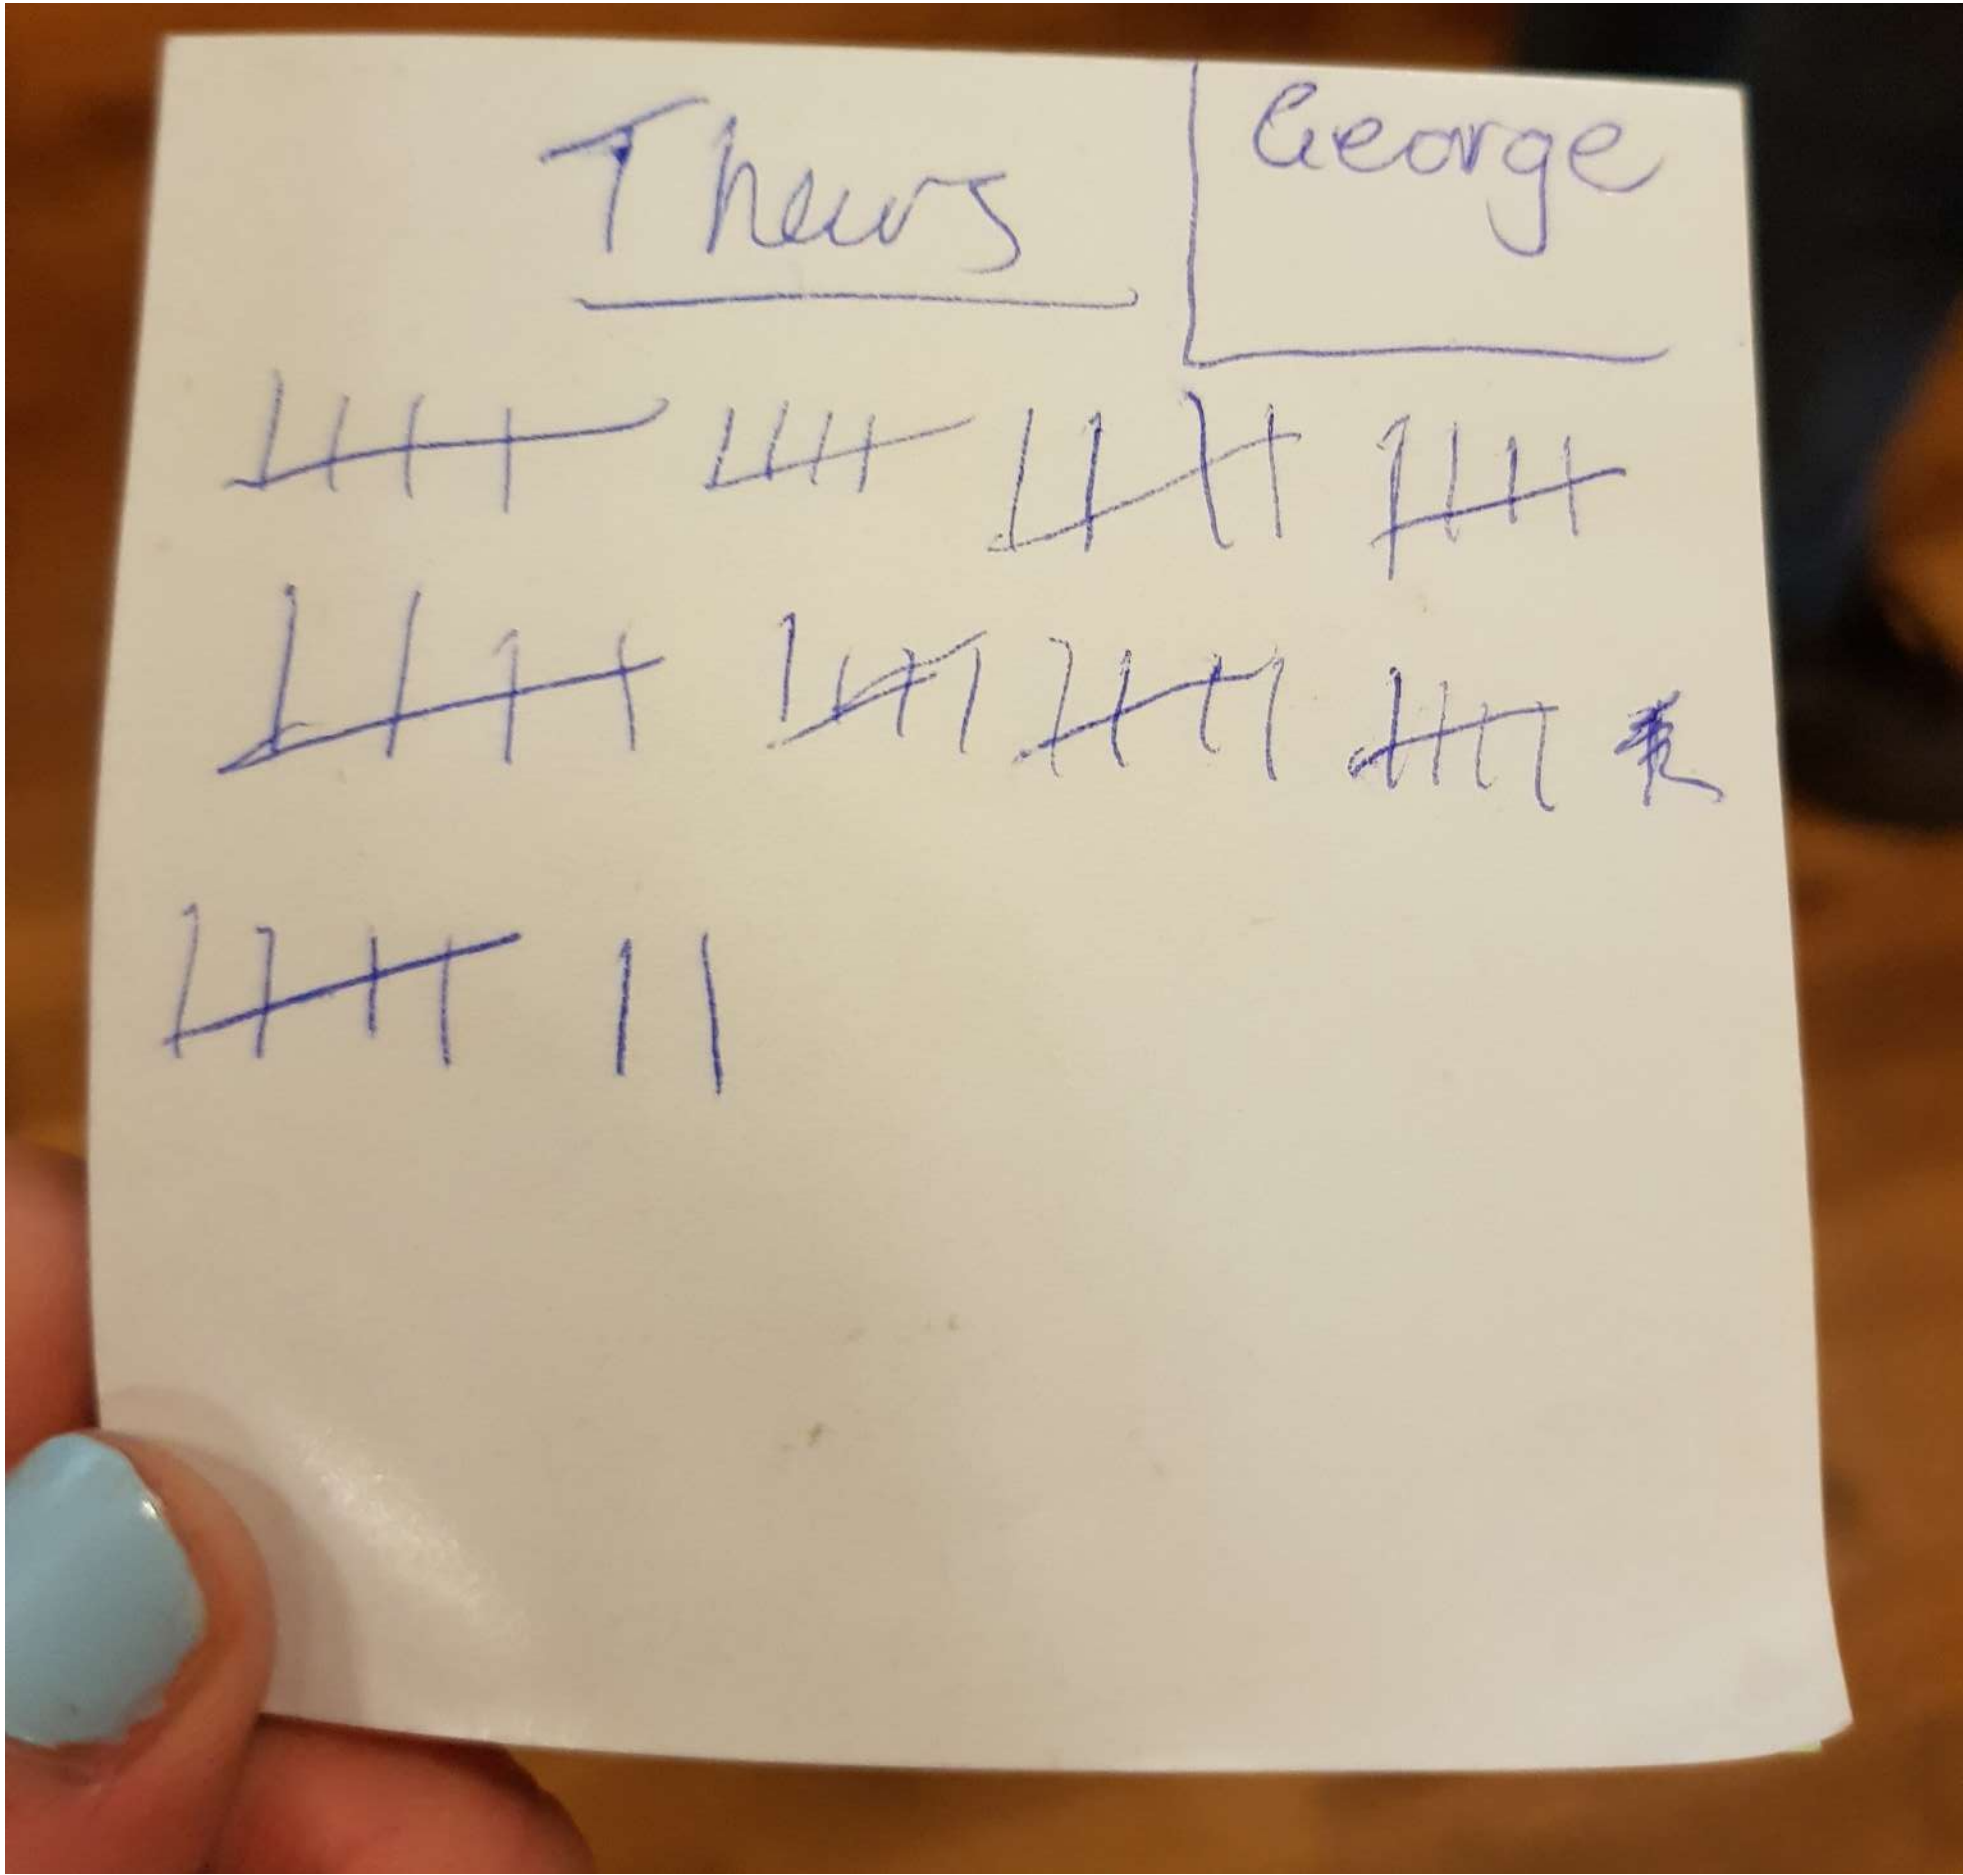 Thurs
George